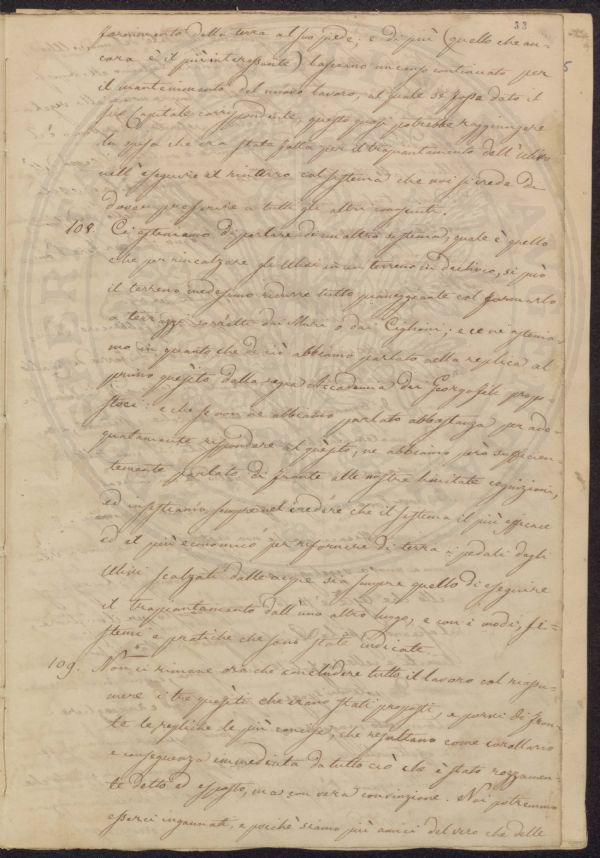 33
5
fornimento della terra al suo piede; e di più (quello che an-
cora è il più interessante) lasciano un censo continuato per
il mantenimento del nuovo lavoro, al quale se fosse dato il
suo Capitale corrispondente, questo quasi potrebbe raggiungere
la spesa che era stata fatta per il trapiantamento dell'Ulivo
nell'eseguirne il rinterro col sistema che noi si crede di
dover preferire a tutti gli altri
108. Ci asteniamo di parlare di un altro sistema, quale è quello
che per rincalzare gli Ulivi in un terreno in declivio, si può
il terreno medesimo ridurre tutto pianeggiante col formarlo
a terrazzi sorretti dai Muri o dai Ciglioni; e ce ne astenia-
mo in quanto che di ciò abbiamo parlato nella replica al
primo quesito dalla regia Accademia dei Georgofili propo-
stoci: e che se non ne abbiamo parlato abbastanza per ade-
quatamente rispondere al quesito, ne abbiamo però sufficien-
temente parlato di fronte alle nostre limitate cognizioni,
ed insistiamo sempre nel credere che il sistema il più efficace
ed il più economico per rifornire di terra i pedali degli
Ulivi scalzati dalle acque sia sempre quello di eseguire
il trapiantamento dall'uno altro luogo, e con i modi, si-
stemi e pratiche che sono state indicate.
109. Non ci rimane ora che concludere tutto il lavoro col reassu-
mere i tre quesiti che erano stati proposti, e porvi di fron-
te le repliche le più concise, che resultano come corollario
e conseguenza immediata da tutto ciò che è stato rozzamen-
te detto ed esposto, ma con vera convinzione. Noi potremmo
esserci ingannati, e poichè siamo più amici del vero che delle